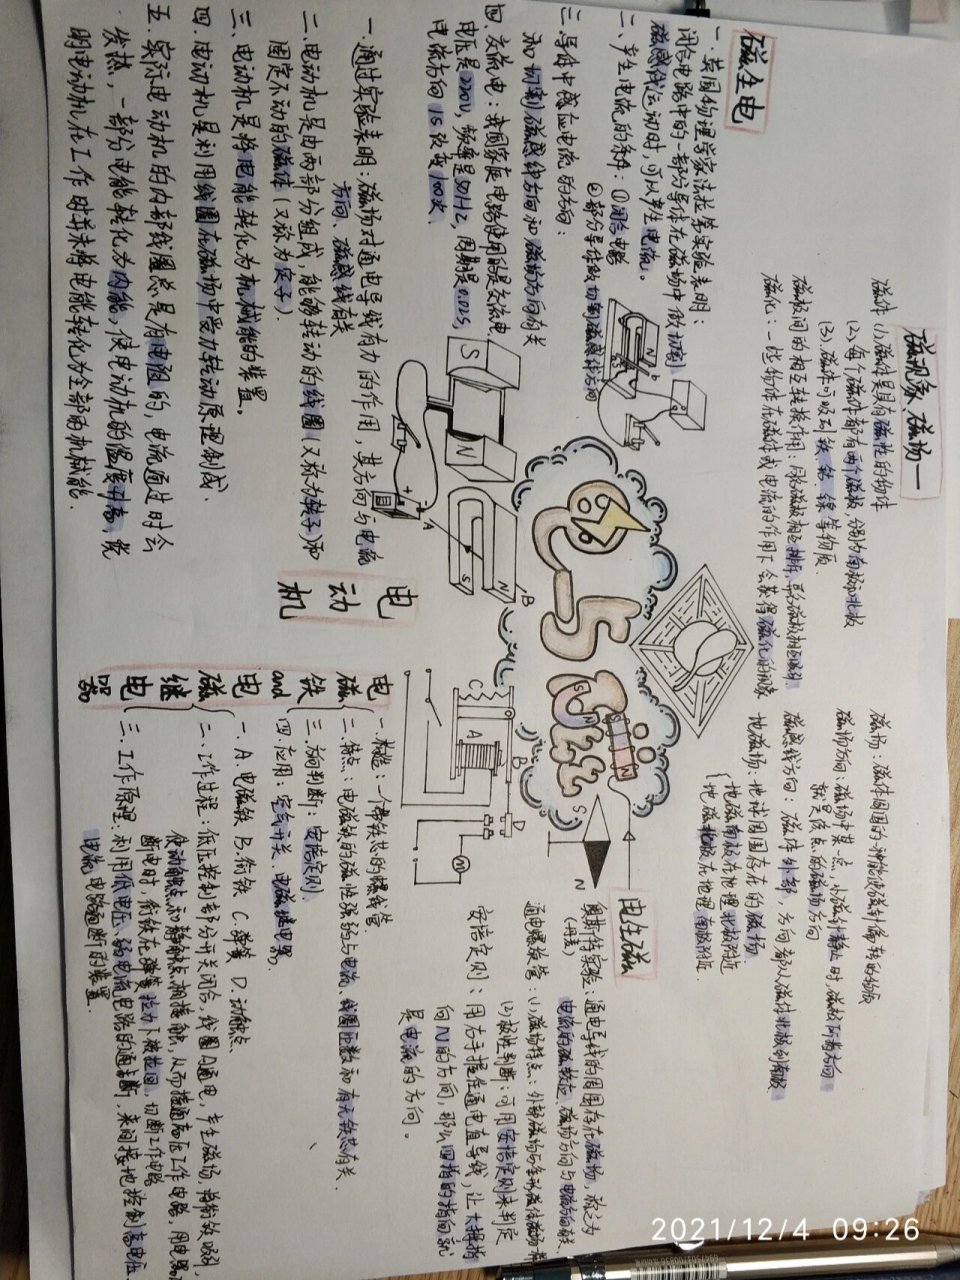 磁现象、磁场一
磁体 (1)磁体是具有磁性的物体
(2)每个磁体都有两个磁极,分别为南极和北极
(3)磁体可吸引铁 钴 镍等物质.
磁极间的相互作用:同名磁极相互排斥,异名磁极相互吸引
磁化:一些物体在磁体或电流的作用下会获得磁性的现象
磁场:磁体周围的 能使磁针偏转的物质
磁场方向:磁场中某一点,小磁针静止时,磁极所指方向
就是该点磁场方向
磁感线方向:磁体外部,方向都从磁体北极到南极
地磁场:地球周围存在的磁场
地磁南极在地理北极附近
地磁北极在地理南极附近.
磁生电
一.英国物理学家法拉第实验表明:
闭合电路中的一部分导体在磁场中做切割
磁感线运动时,可以产生电流。
二.产生电流的条件:①闭合电路
②部分导体做切割磁感线运动
三.导体中感应电流的方向:
和切割磁感线方向和磁场方向有关
四.交流电:我国家庭电路使用的是交流电,
电压是220V,频率是50HZ,周期是0.02S,
电流方向1S改变100次.
电动机
一.通过实验表明:磁场对通电导线有力的作用,其方向与电流
方向、磁感线有关
二.电动机是由两部分组成,能够转动的线圈(又称为转子)和
固定不动的磁体(又称为定子).
三.电动机是将电能转化为机械能的装置。
四.电动机是利用线圈在磁场中受力转动原理制成.
五.实际电动机的内部线圈总是有电阻的,电流通过时会
发热,一部分电能转化为内能,使电动机的温度升高,说
明电动机在工作时并未将电能转化为全部的机械能
电生磁
奥斯特实验:通电导线的周围存在磁场,称之为
(丹麦) 电流的磁效应.磁场方向与电流方向有关.
通电螺旋管:(1)磁场特点:外部磁场与条形磁体磁场相
(2)极性判断:可用安培定则来判定
安培定则:用右手握住通电直导线,让大拇指
向N的方向,那么四指的指向就
是电流的方向。
电磁铁 and 电磁继电器
一.构造:一个带铁芯的螺线管
二.特点:电磁铁的磁性强弱与电流,线圈匝数和有无铁芯有关.
三.方向判断:安培定则
四.应用:空气开关 电磁继电器,
一.A电磁铁 B.衔铁 C.弹簧 D.动触点
二.工作过程:低压控制部分开关闭合,线圈A通电,产生磁场,将衔铁吸引,
使动触点和静触点相接触,从而接通高压工作电路,用电
断电时,衔铁在弹簧拉力下被拉回,切断工作电路
三.工作原理:利用低电压、弱电流电路的通断,来间接地控制高电压、
电流 电路通断的装置.
S
N
A
B
S
N
A
B
C
D
M
S
N
N
2021/12/4 09:26